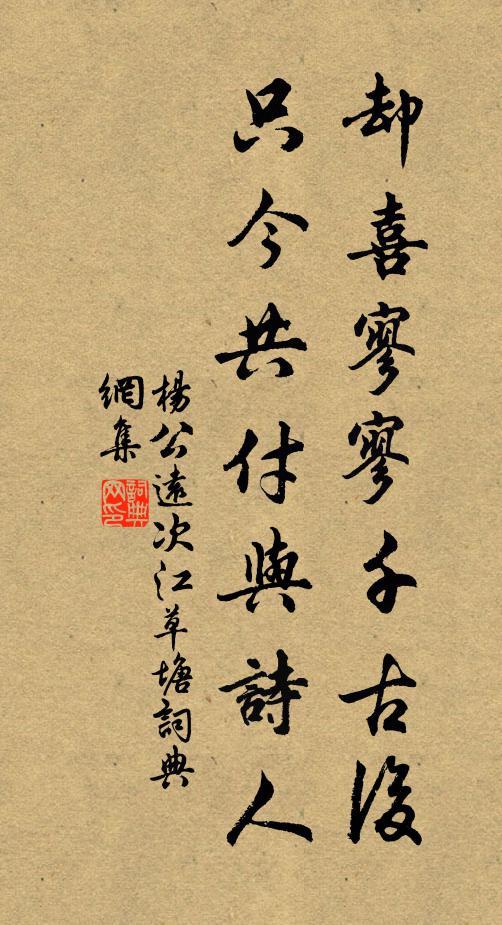 却喜寥寥千古後
只今共付與詩人
楊公遠次江草塘詞典
網集
詞典
网印